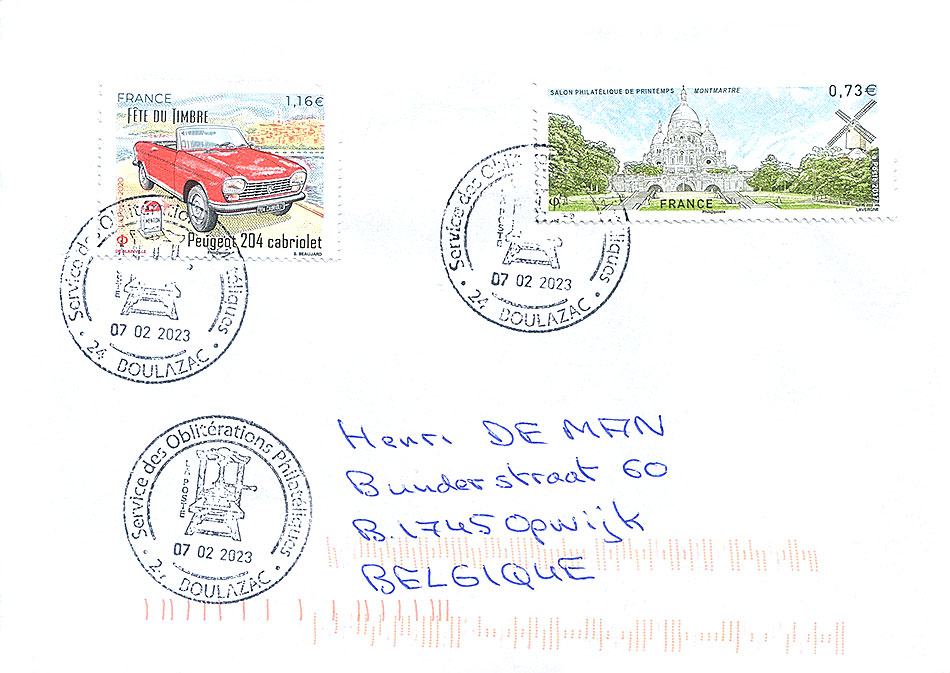 FRANCE 1,16€
FÊTE DU TIMBRE
Peugeot 204 cabriolet
S. BEAUJARD
SALON PHILATÉLIQUE DE PRINTEMPS MONTMARTRE 0,73€
FRANCE
LAVERGNE
Service des Oblitérations Philatéliques
LA POSTE
07 02 2023
24 BOULAZAC
Service des Oblitérations Philatéliques
LA POSTE
07 02 2023
24 BOULAZAC
Service des Oblitérations Philatéliques
LA POSTE
07 02 2023
24 BOULAZAC
Henri DE MAN
Bunderstraat 60
B.1745 Opwijk
BELGIQUE